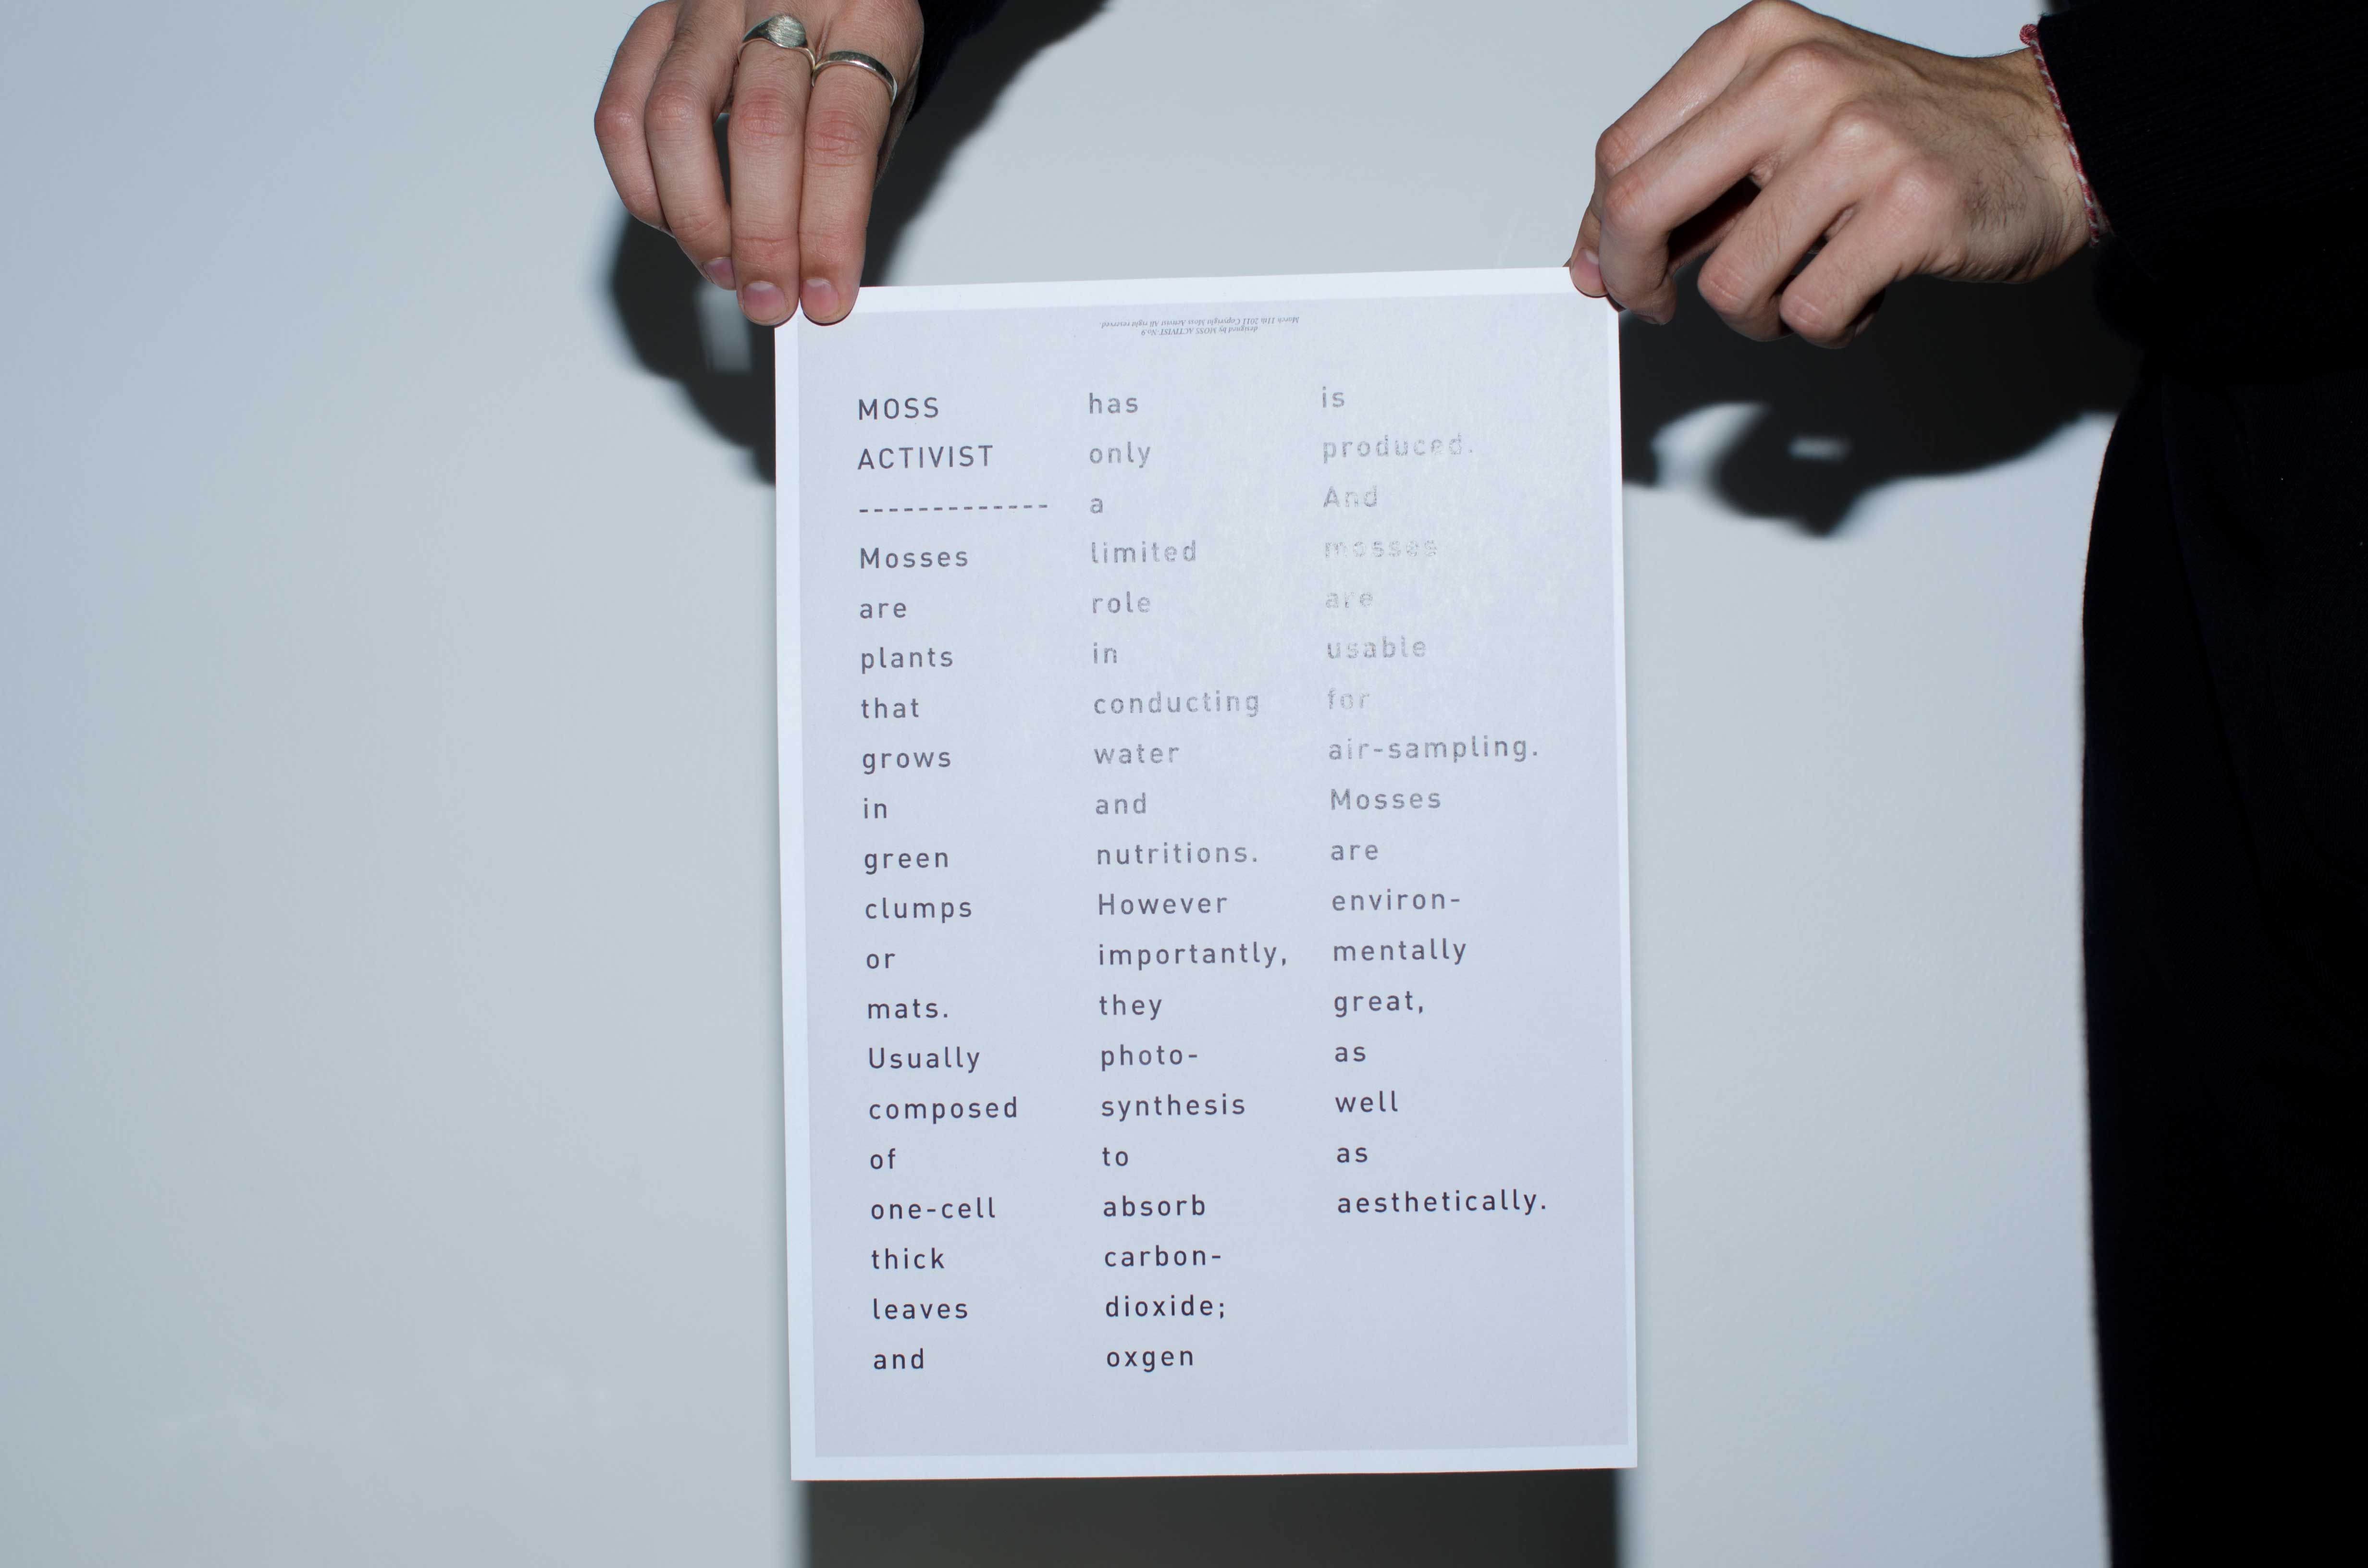 March 11th 2011 Copyright Moss Activist All right reserved.
designed by MOSS ACTIVIST No.9
MOSS
ACTIVIST
-------------
Mosses
are
plants
that
grows
in
green
clumps
or
mats.
Usually
composed
of
one-cell
thick
leaves
and
has
only
a
limited
role
in
conducting
water
and
nutritions.
However
importantly,
they
photo-
synthesis
to
absorb
carbon-
dioxide;
oxgen
is
produced.
And
mosses
are
usable
for
air-sampling.
Mosses
are
environ-
mentally
great,
as
well
as
aesthetically.